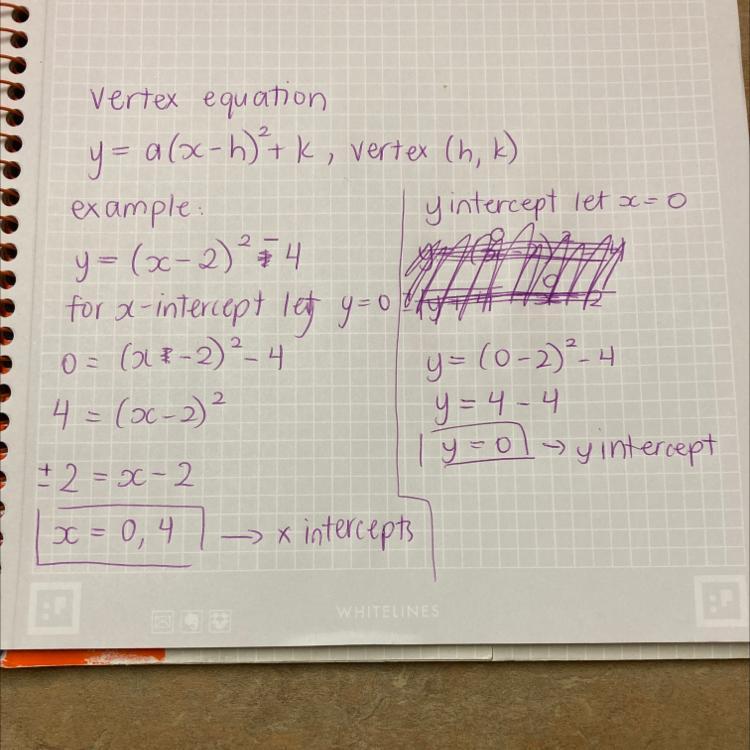 vertex equation
y = a(x-h)² + k, vertex (h, k)
example:
y = (x-2)² - 4
for x-intercept let y=0
0 = (x-2)² - 4
4 = (x-2)²
±2 = x-2
x = 0, 4 → x intercepts
y intercept let x = 0
y = (0-2)² - 4
y = 4 - 4
y = 0 → y intercept
WHITELINES